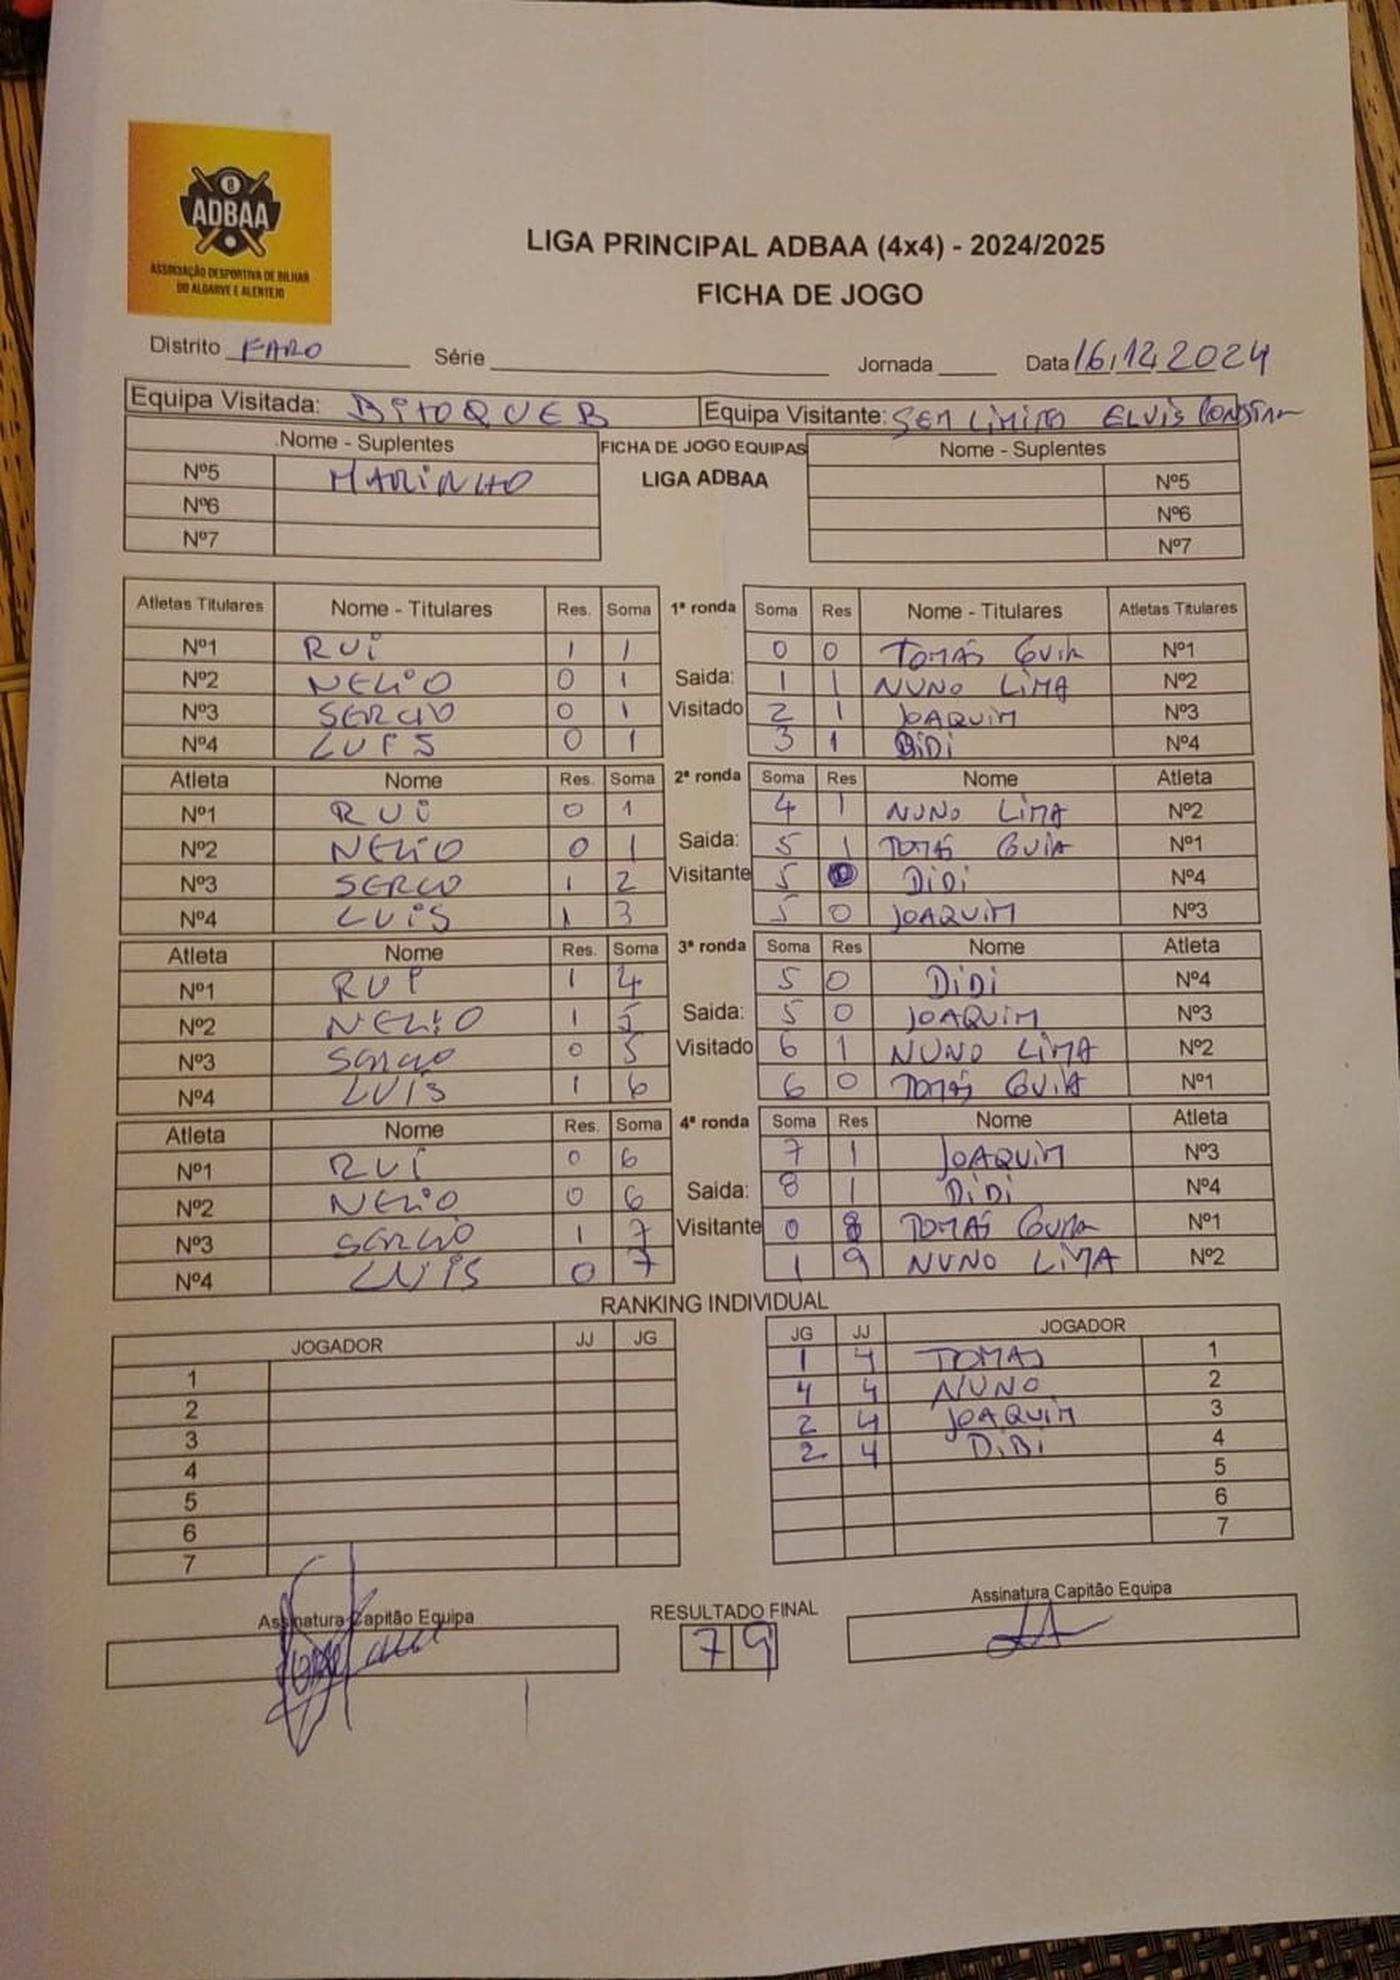 8
ADBAA
ASSOCIAÇÃO DESPORTIVA DE BILHAR
DO ALGARVE E ALENTEJO
LIGA PRINCIPAL ADBAA (4x4) - 2024/2025
FICHA DE JOGO
Distrito FARO Série Jornada Data 16,12,2024
Equipa Visitada: BITOQUE B Equipa Visitante: SEM LIMITES ELVIS
Nome - Suplentes FICHA DE JOGO EQUIPAS Nome - Suplentes
Nº5 MARINHO LIGA ADBAA Nº5
Nº6 Nº6
Nº7 Nº7
Atletas Titulares Nome - Titulares Res. Soma 1ª ronda Soma Res Nome - Titulares Atletas Titulares
Nº1 RUI 1 1 0 0 TOMÁS GUIA Nº1
Nº2 NELIO 0 1 Saida: 1 1 NUNO LIMA Nº2
Nº3 SERGIO 0 1 Visitado 2 1 JOAQUIM Nº3
Nº4 LUIS 0 1 3 1 DIDI Nº4
Atleta Nome Res. Soma 2ª ronda Soma Res Nome Atleta
Nº1 RUI 0 1 4 1 NUNO LIMA Nº2
Nº2 NELIO 0 1 Saida: 5 1 TOMÁS GUIA Nº1
Nº3 SERGIO 1 2 Visitante 5 0 DIDI Nº4
Nº4 LUIS 1 3 5 0 JOAQUIM Nº3
Atleta Nome Res. Soma 3ª ronda Soma Res Nome Atleta
Nº1 RUI 1 4 5 0 DIDI Nº4
Nº2 NELIO 1 5 Saida: 5 0 JOAQUIM Nº3
Nº3 SERGIO 0 5 Visitado 6 1 NUNO LIMA Nº2
Nº4 LUIS 1 6 6 0 TOMÁS GUIA Nº1
Atleta Nome Res. Soma 4ª ronda Soma Res Nome Atleta
Nº1 RUI 0 6 7 1 JOAQUIM Nº3
Nº2 NELIO 0 6 Saida: 8 1 DIDI Nº4
Nº3 SERGIO 1 7 Visitante 0 8 TOMÁS GUIA Nº1
Nº4 LUIS 0 7 1 9 NUNO LIMA Nº2
RANKING INDIVIDUAL
JOGADOR JJ JG JG JJ JOGADOR
1 1 4 TOMAS 1
2 4 4 NUNO 2
3 2 4 JOAQUIM 3
4 2 4 DIDI 4
5 5
6 6
7 7
Assinatura Capitão Equipa RESULTADO FINAL Assinatura Capitão Equipa
7 9